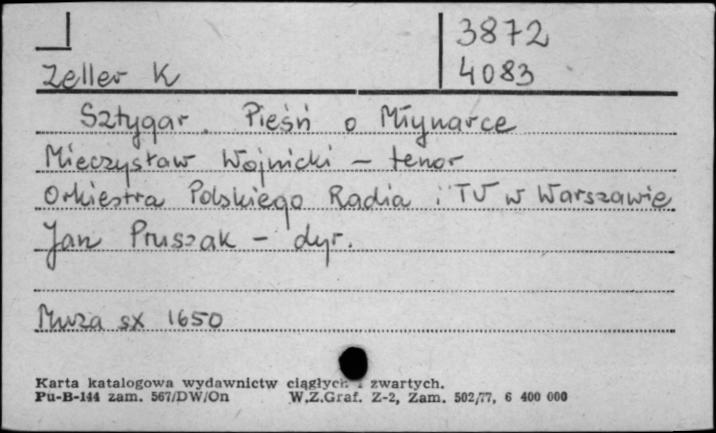 3872
Zeller K
4083
Sztygar. Pieśń o Młynarce
Mieczysław Wojnicki - tenor
Orkiestra Polskiego Radia i TV w Warszawie
Jan Pruszak - dyr.
Muza sx 1650
Karta katalogowa wydawnictw ciągłych i zwartych.
Pu-B-144 zam. 567/DW/On W.Z.Graf. Z-2, Zam. 502/77, 6 400 000